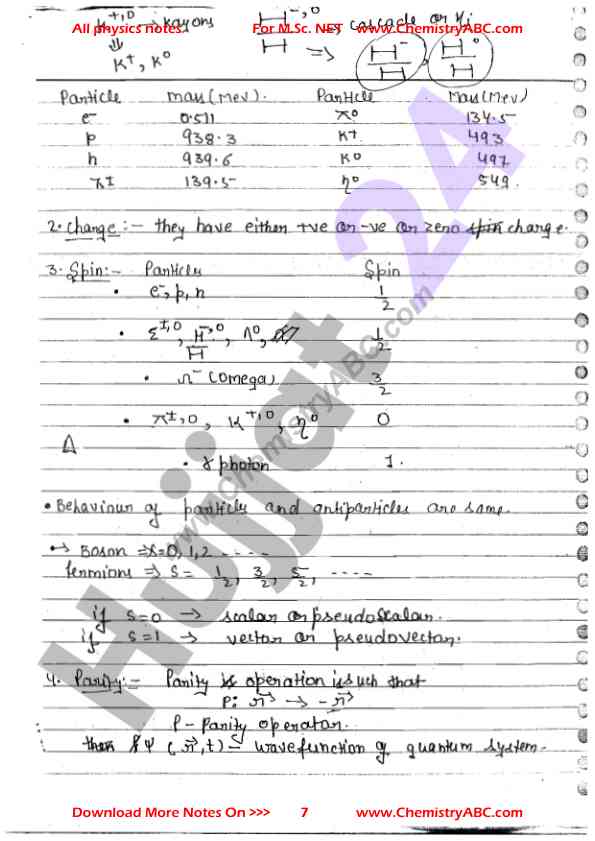 K⁺'⁰ → kayons Ξ⁻'⁰ → cascade or
All physics notes For M.Sc. NET www.ChemistryABC.com
⇓ K⁺, K⁰ ⇒ Ξ⁻, Ξ⁰
Particle mass(Mev). Particle Mass(Mev)
e⁻ 0.511 π⁰ 134.5
p 938.3 K⁺ 493
n 939.6 K⁰ 497
π± 139.5 η⁰ 549
2. Charge :- they have either +ve or -ve or zero spin charge.
3. Spin:- Particles Spin
• e⁻, p, n 1/2
• Σ±'⁰, Ξ⁻'⁰, Λ⁰, 1/2
• Ω⁻ (omega) 3/2
• π±,⁰, K⁺'⁰, η⁰ 0
Δ
• γ photon 1.
• Behaviour of particles and antiparticles are same.
•→ Boson ⇒ s=0, 1, 2 - - - - -
fermions ⇒ s = 1/2, 3/2, 5/2, - - - -
if s=0 → scalar or pseudoscalar.
if s=1 → vector or pseudovector.
4. Parity:- Parity is operation is such that
P: r⃗ → -r⃗
P - Parity operator.
then if ψ (r⃗, t) - wavefunction of quantum system.
Hujjat 24
www.ChemistryABC.com
Download More Notes On >>> 7 www.ChemistryABC.com